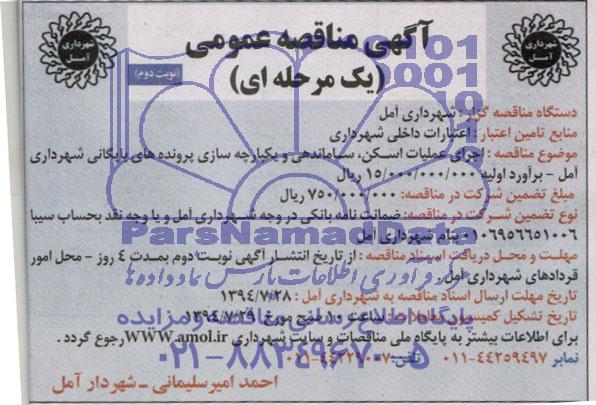 آگهی مناقصه عمومی
(یک مرحله ای)
(نوبت دوم)
شهرداری آمل
شهرداری آمل
دستگاه مناقصه گزار : شهرداری آمل
منابع تامین اعتبار : اعتبارات داخلی شهرداری
موضوع مناقصه : اجرای عملیات اسکن، ساماندهی و یکپارچه سازی پرونده های بایگانی شهرداری
آمل - برآورد اولیه ۱۵/۰۰۰/۰۰۰/۰۰۰ ریال
مبلغ تضمین شرکت در مناقصه: ۷۵۰/۰۰۰/۰۰۰ ریال
نوع تضمین شرکت در مناقصه: ضمانت نامه بانکی در وجه شهرداری آمل و یا وجه نقد بحساب سیبا
۰۱۰۶۹۵۶۶۵۱۰۰۶ بنام شهرداری آمل
مهلت و محل دریافت اسناد مناقصه : از تاریخ انتشار آگهی نوبت دوم بمدت ۴ روز - محل امور
قراردادهای شهرداری آمل
تاریخ مهلت ارسال اسناد مناقصه به شهرداری آمل : ۱۳۹۴/۷/۲۸
تاریخ تشکیل کمیسیون معاملات : ساعت ۱۰ صبح مورخ ۱۳۹۴/۷/۲۹
برای اطلاعات بیشتر به پایگاه ملی مناقصات و سایت شهرداری WWW.amol.ir رجوع گردد .
نمابر ۴۴۲۵۹۴۹۷-۰۱۱ تلفن:
احمد امیرسلیمانی - شهردار آمل
ParsNamadData
فرآوری اطلاعات پارس نماد داده ها
پایگاه اطلاع رسانی مناقصه و مزایده
۰۲۱-۸۸۳۴۹۶۷۰-۵